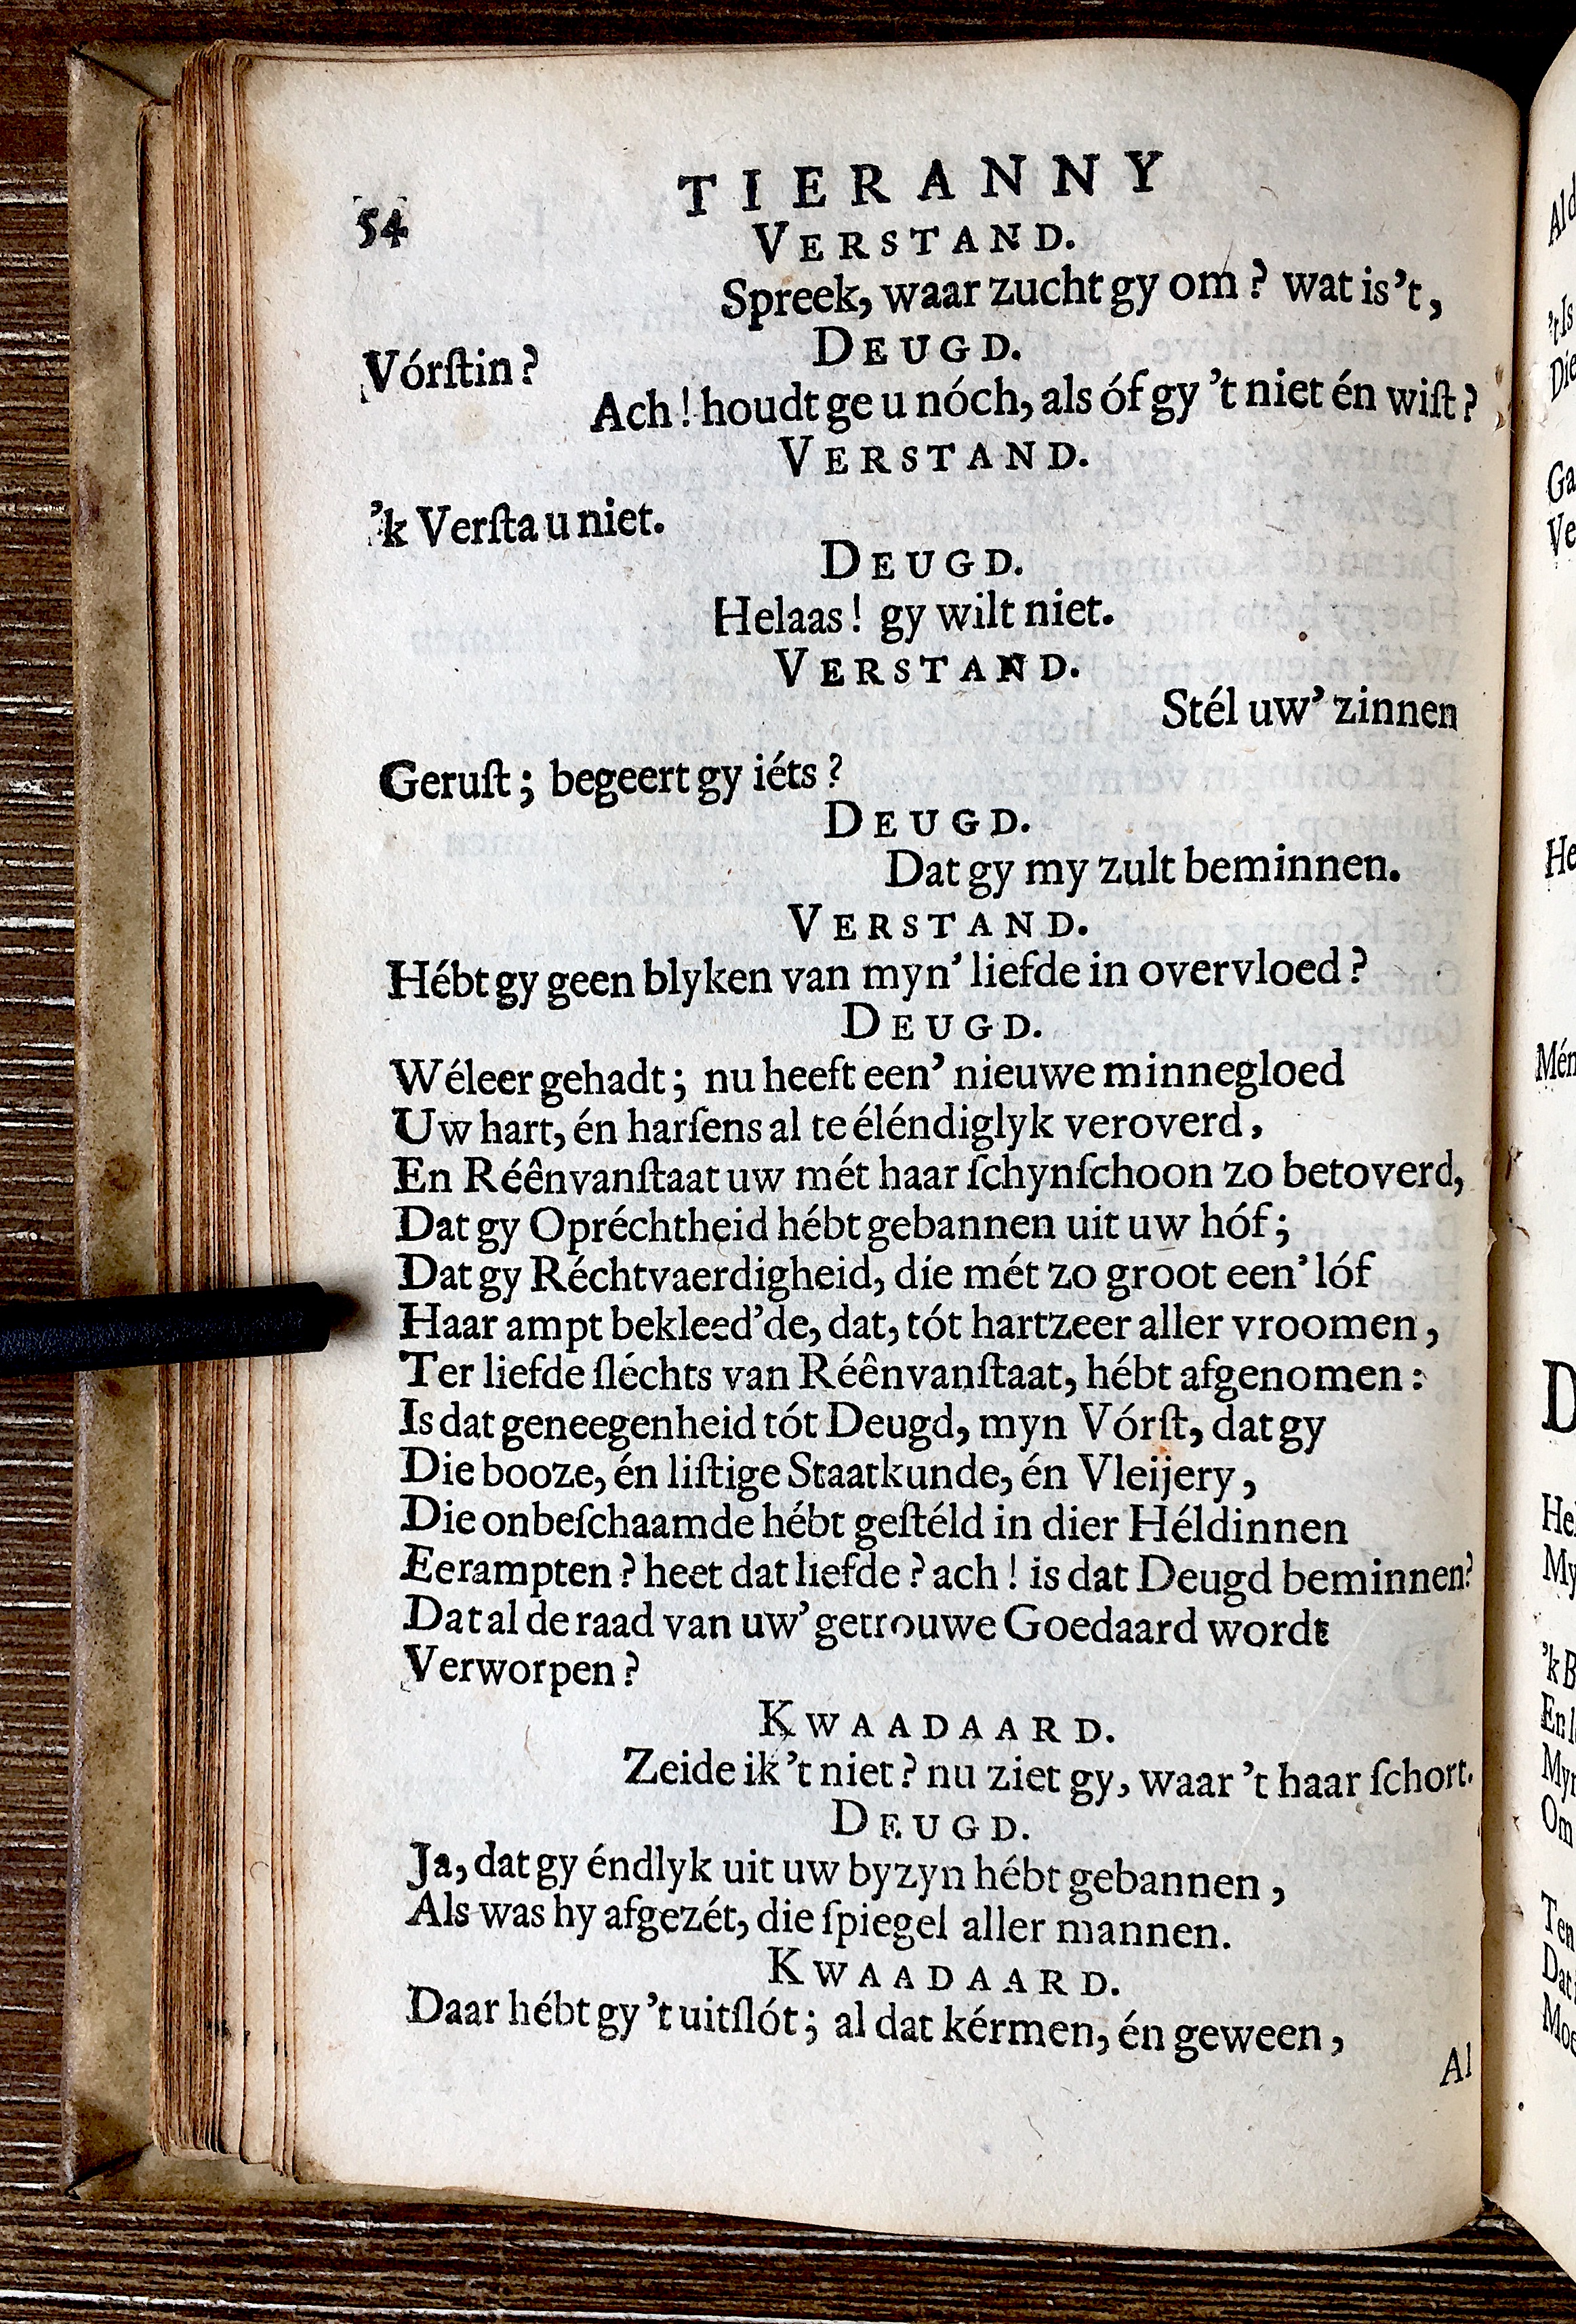 54 TIERANNY
VERSTAND.
Spreek, waar zucht gy om? wat is't,
DEUGD.
Vórſtin?
Ach! houdt ge u nóch, als óf gy 't niet én wiſt?
VERSTAND.
'k Verſta u niet.
DEUGD.
Helaas! gy wilt niet.
VERSTAND.
Stél uw' zinnen
Geruſt; begeert gy iéts?
DEUGD.
Dat gy my zult beminnen.
VERSTAND.
Hébt gy geen blyken van myn' liefde in overvloed?
DEUGD.
Wéleer gehadt; nu heeft een' nieuwe minnegloed
Uw hart, én harſens al te éléndiglyk veroverd,
En Réênvanſtaat uw mét haar ſchynſchoon zo betoverd,
Dat gy Opréchtheid hébt gebannen uit uw hóf;
Dat gy Réchtvaerdigheid, die mét zo groot een' lóf
Haar ampt bekleed'de, dat, tót hartzeer aller vroomen,
Ter liefde ſléchts van Réênvanſtaat, hébt afgenomen:
Is dat geneegenheid tót Deugd, myn Vórſt, dat gy
Die booze, én liſtige Staatkunde, én Vleijery,
Die onbeſchaamde hébt geſtéld in dier Héldinnen
Eerampten? heet dat liefde? ach! is dat Deugd beminnen?
Dat al de raad van uw' getrouwe Goedaard wordt
Verworpen?
KWAADAARD.
Zeide ik 't niet? nu ziet gy, waar 't haar ſchort.
DEUGD.
Ja, dat gy éndlyk uit uw byzyn hébt gebannen,
Als was hy afgezét, die ſpiegel aller mannen.
KWAADAARD.
Daar hébt gy 't uitſlót; al dat kérmen, én geween,
Al